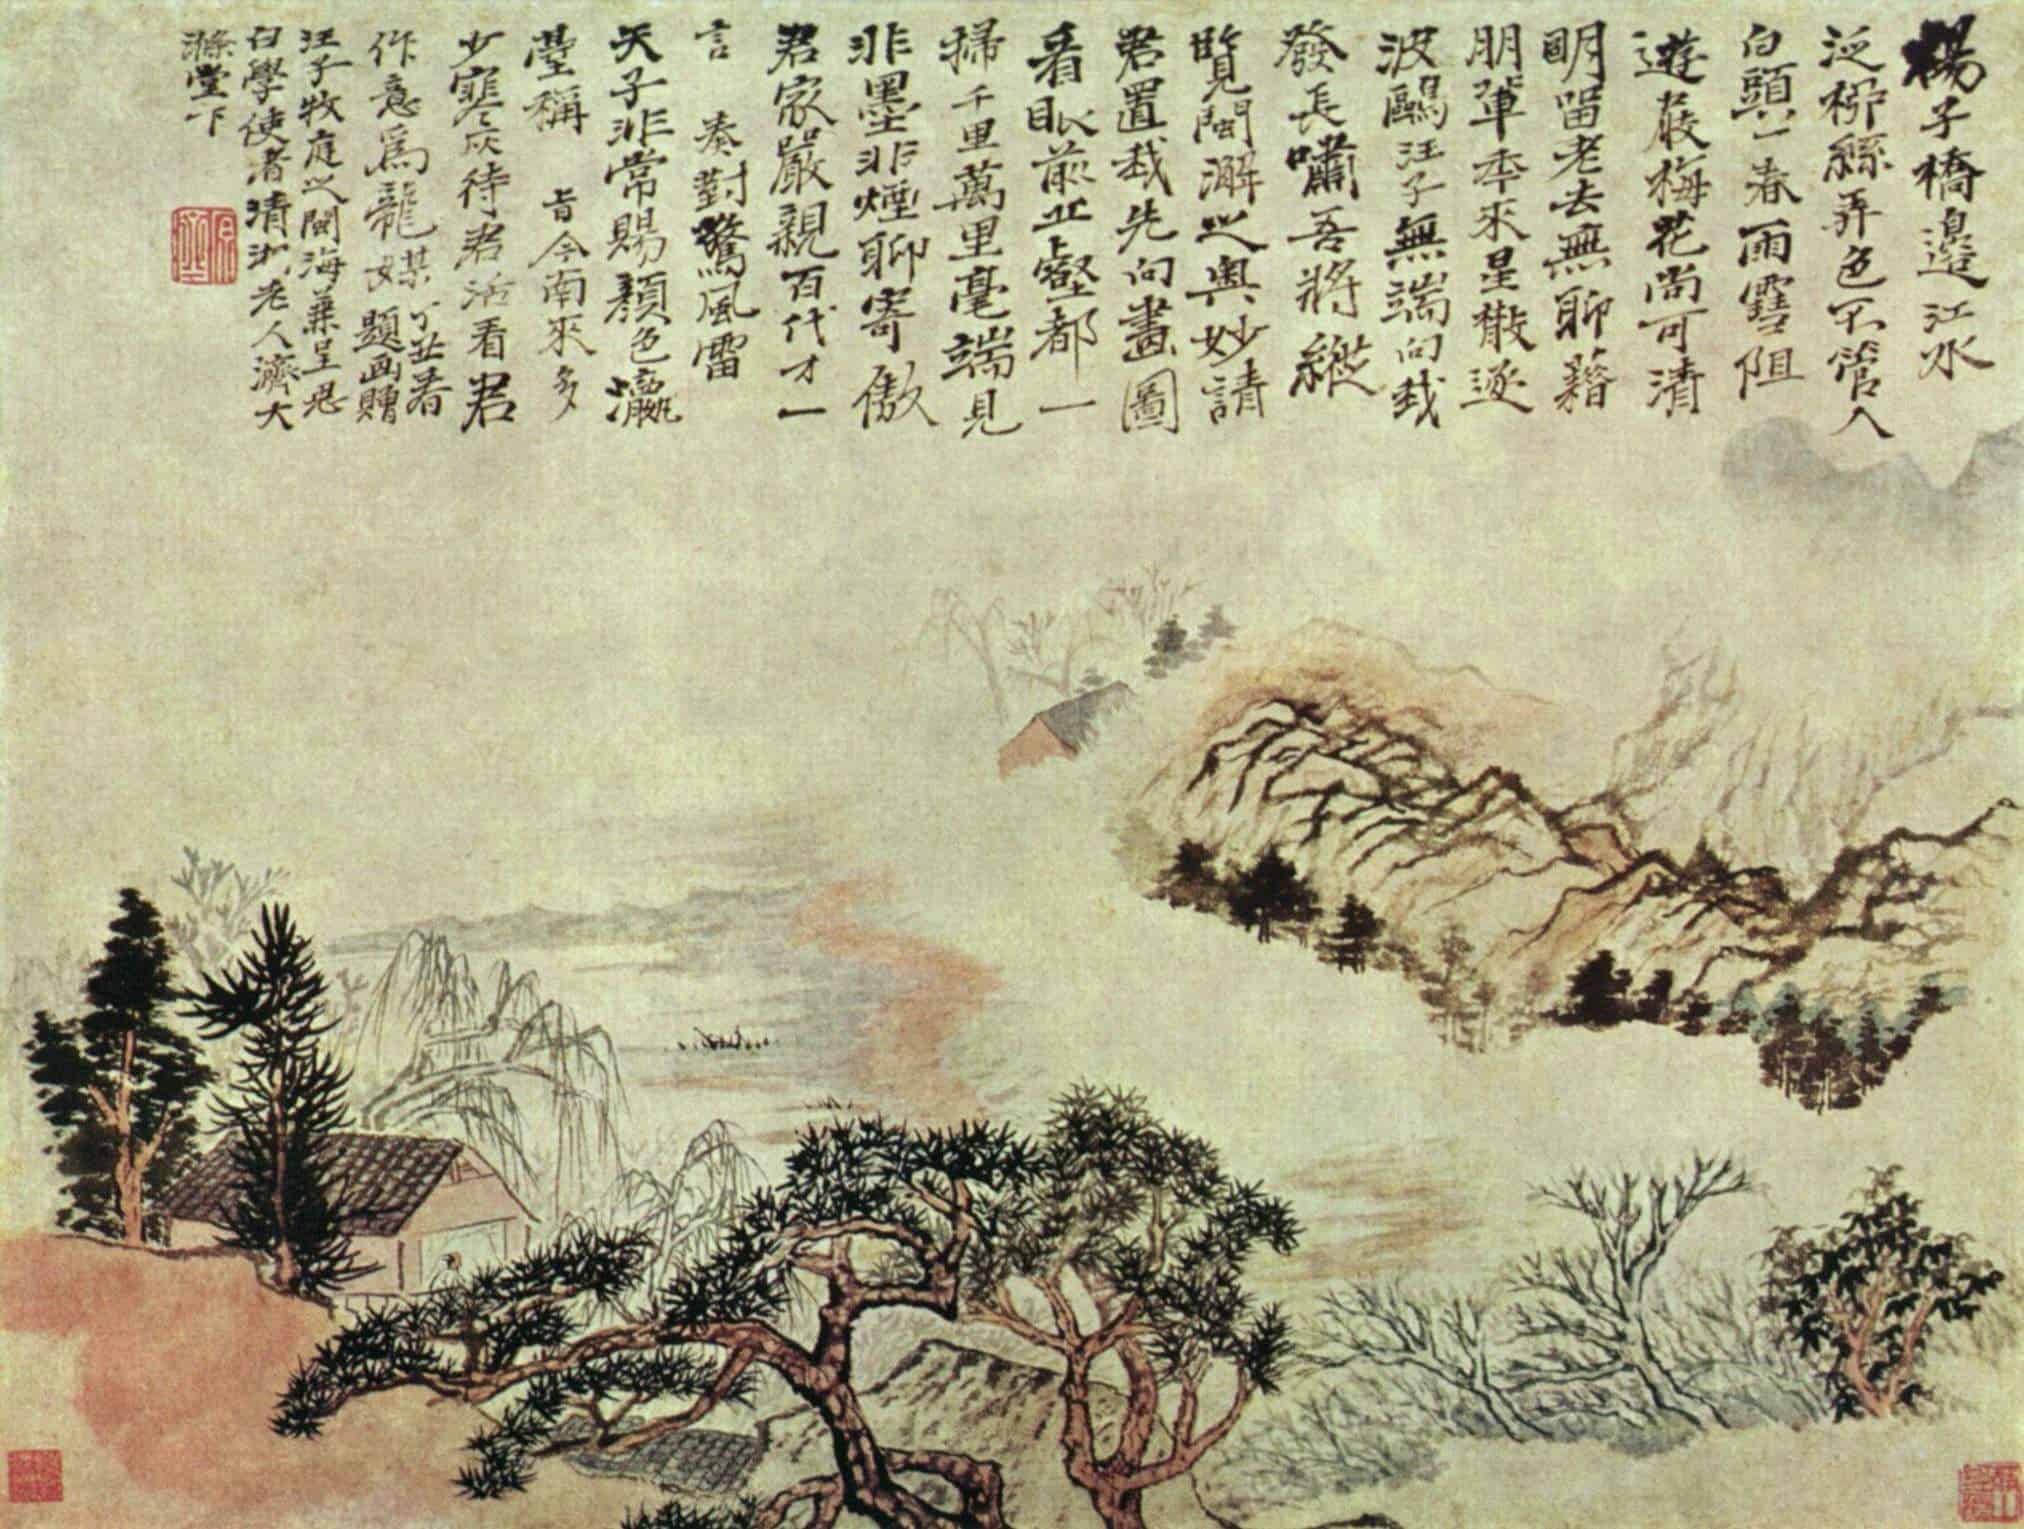 楊子橋邊江水
泛柳絲弄色不管人
白頭一春雨雪阻
遊屐梅花尚可清
明留老去無聊藉
朋輩年來星散逐
波鷗汪子無端向我
發長嘯吾將縱
覽閩澥之奧妙請
君置我先向畫圖
看眼前丘壑都一
掃千里萬里毫端見
非墨非煙聊寄傲
君家嚴親百代才一
言 奏對驚風雷
天子非常賜顏色瀛
臺稱 旨今南來多
少寒灰待君活看君
作意爲龍媒丁丑春
題画贈
汪子牧庭之閩海兼呈思
白學使者清湘老人濟大
滌堂下